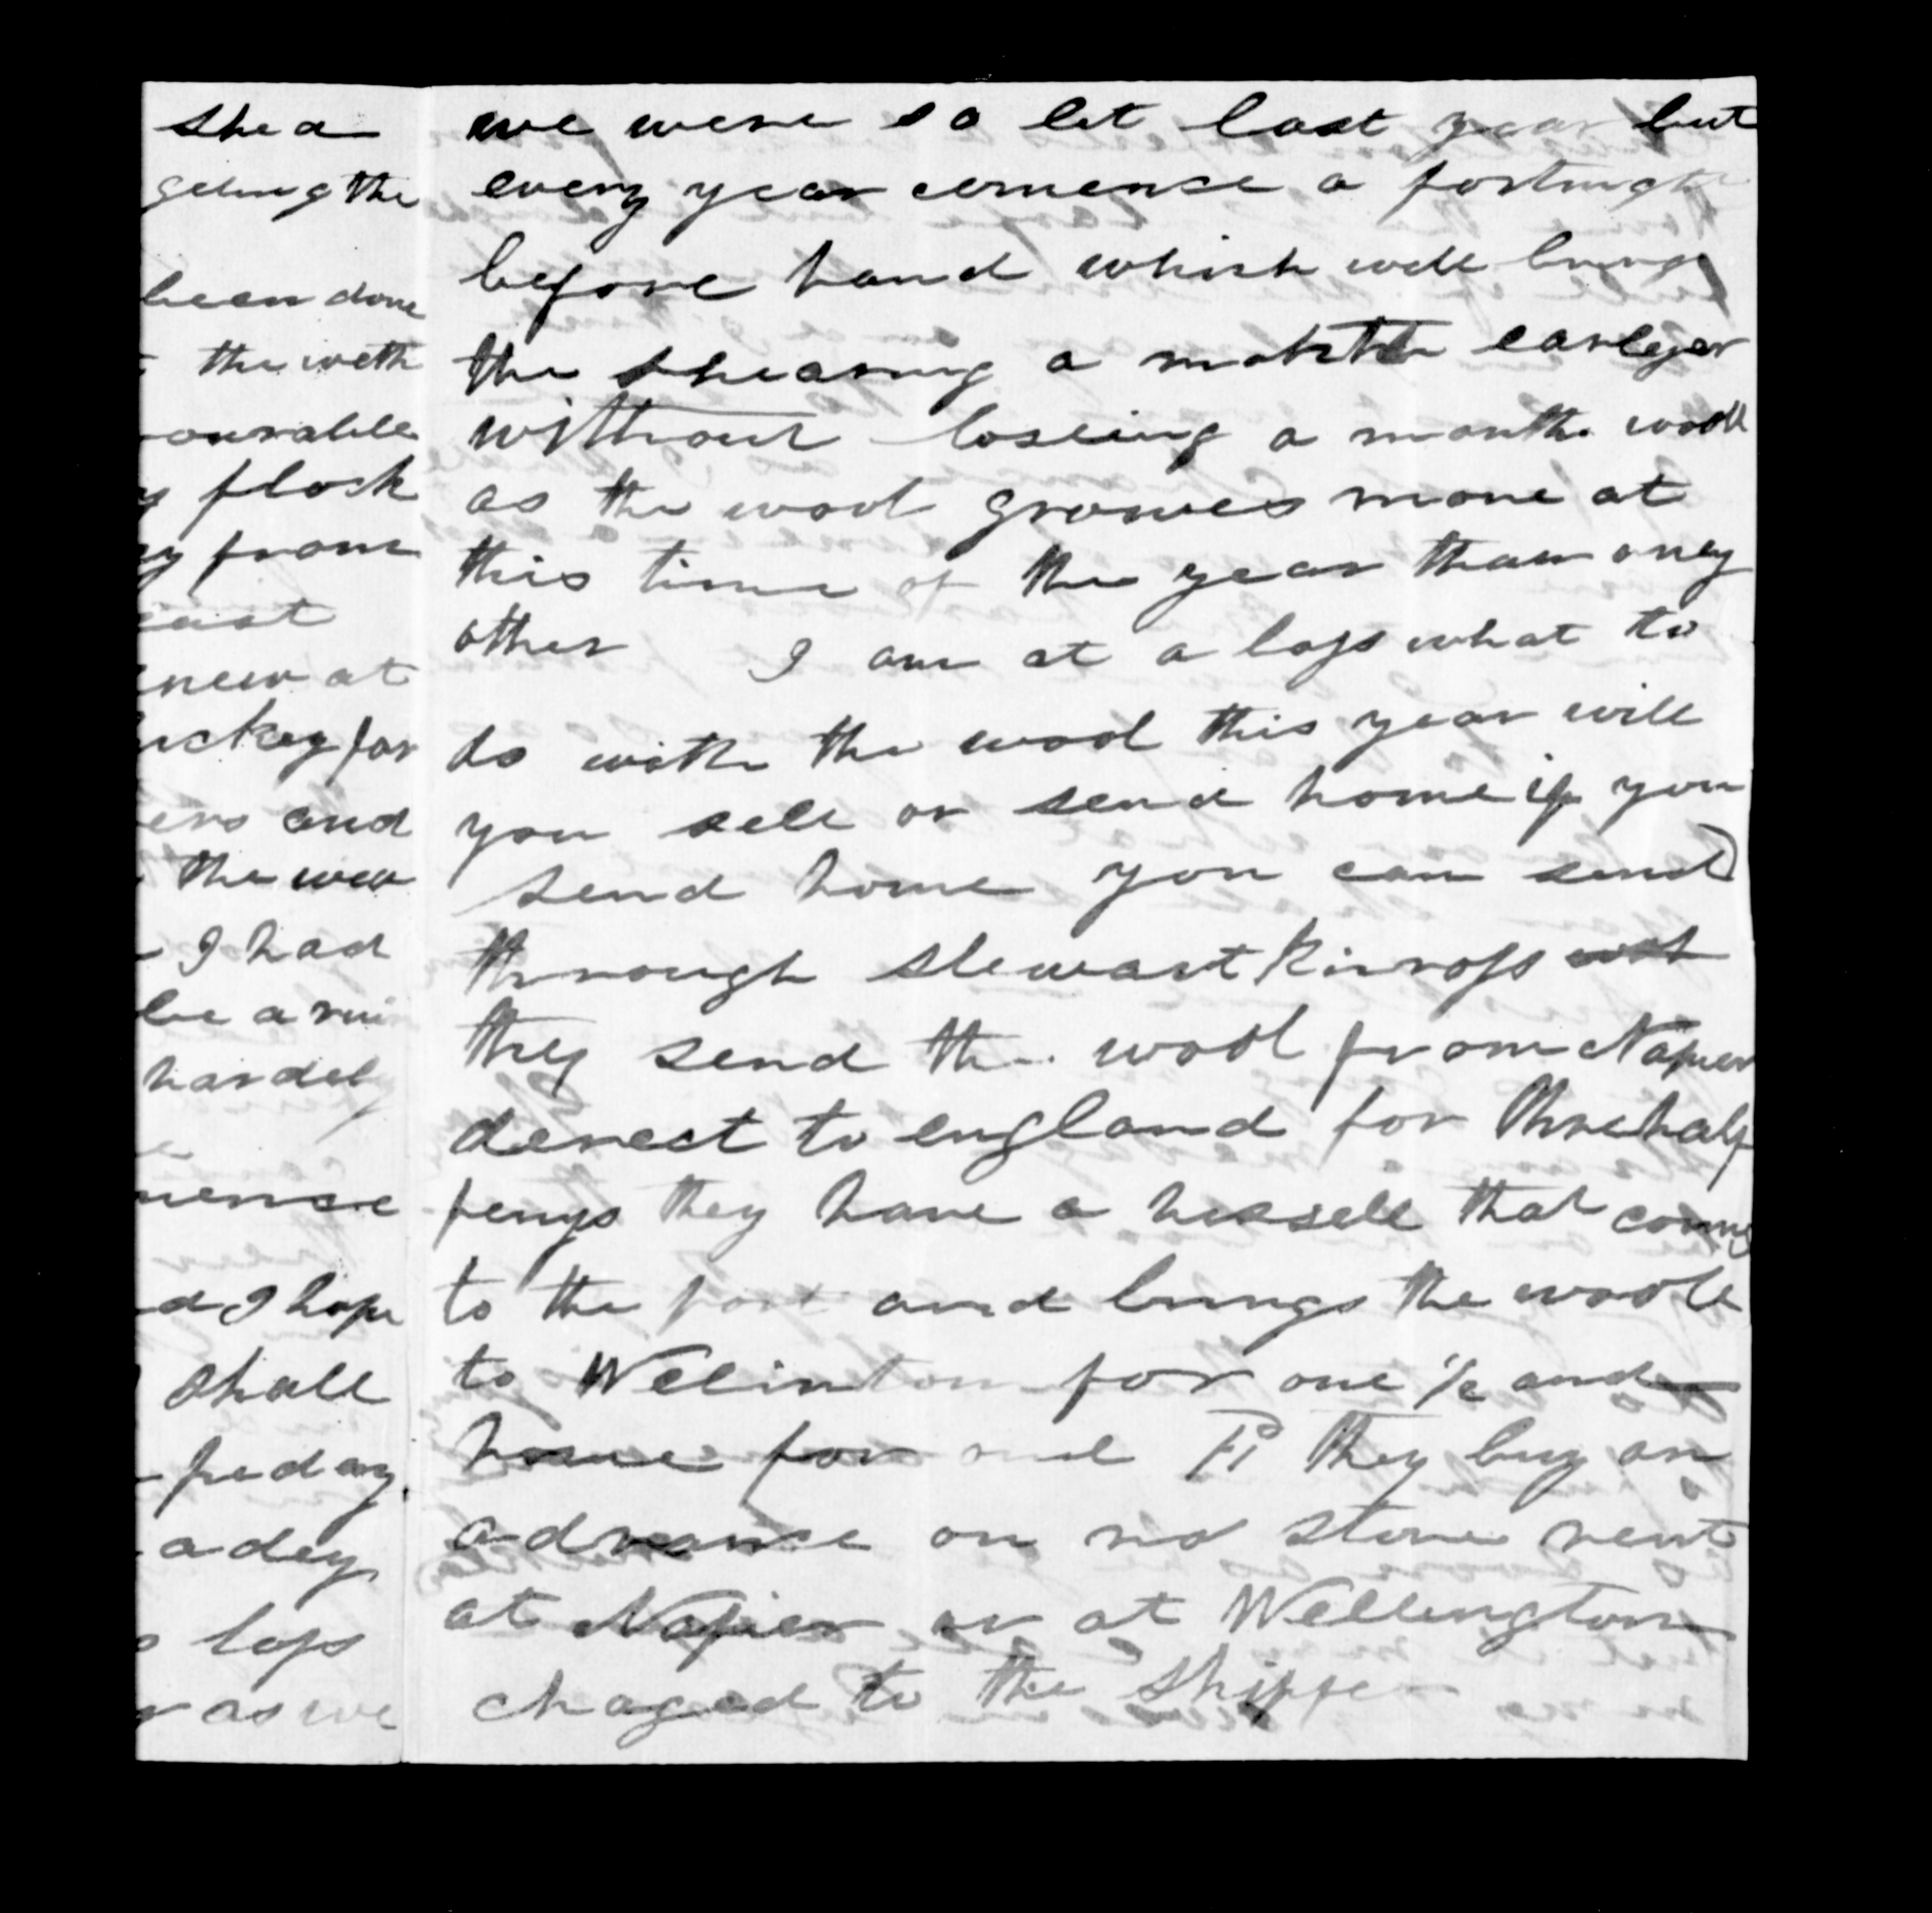 shea
geting the
been done
the weth
ourable
flock
from
east
new at
uckey for
ers and
the wea
I had
be a rui
hardel
mence
d I hope
shall
a dey
loss
as we
we were so let last year but
every year cemense a fortnight
before hand which will bring
the shearing a month earleyer
without loseing a month wooll
as the wool growes more at
this time of the year than oney
other I am at a loss what to
do with the wool this year will
you sell or send home if you
send home you can send
through Stewart Kinross
they send the wool from Napier
derect to england for three half
penys they have a vessell that comes
to the port and brings the wooll
to Welinton for one 1/2 and
home for one P they buy an
advance on no store rent
at Napier or at Wellington
chaged to the Shipper